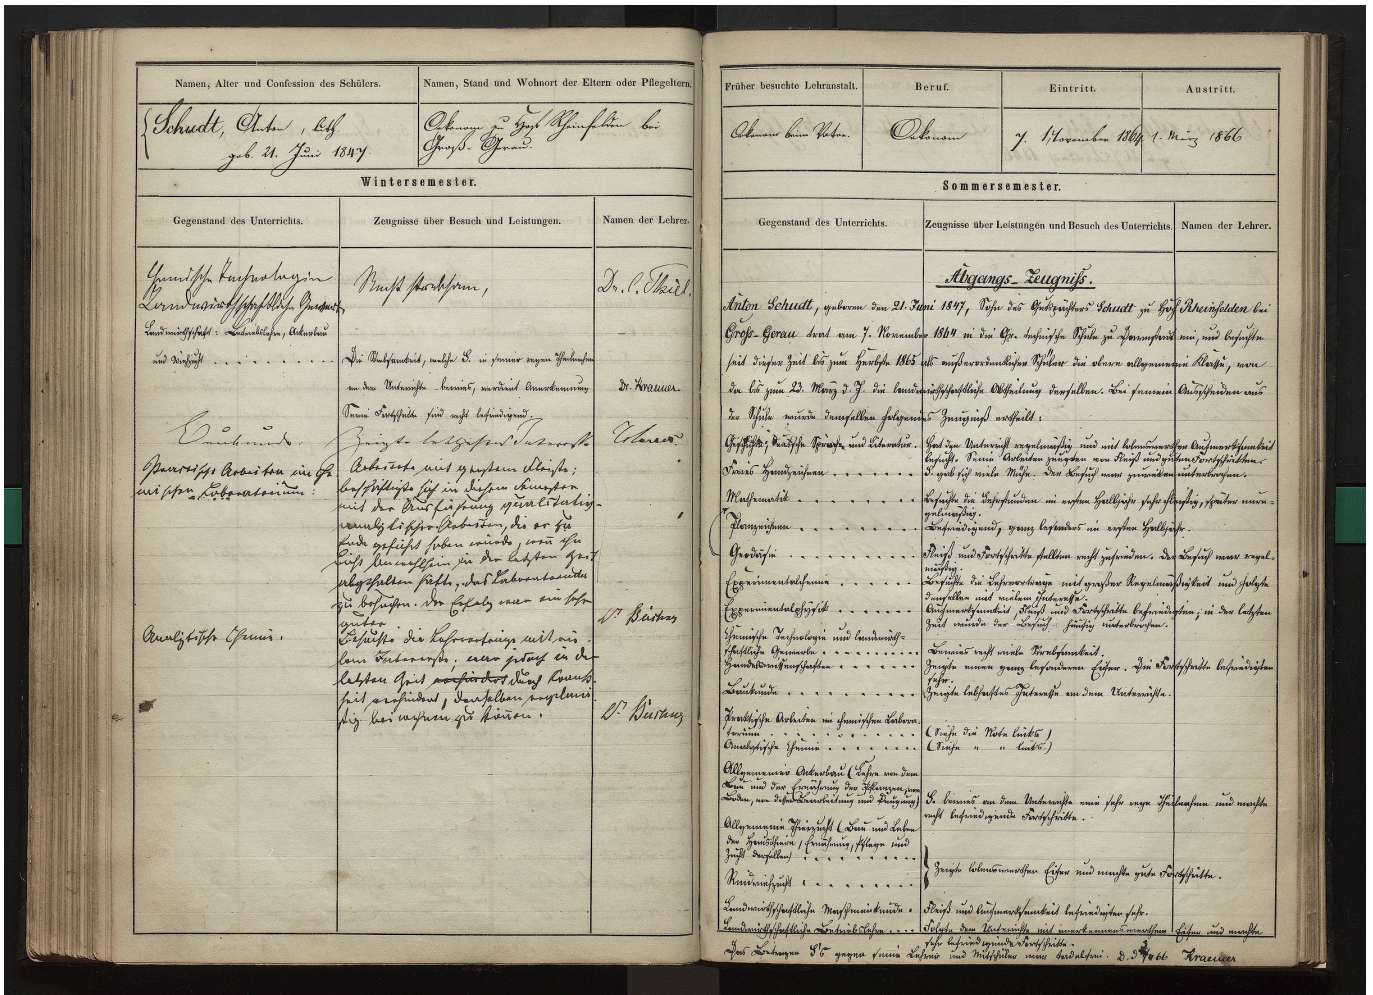 Namen, Alter und Confession des Schülers.
Namen, Stand und Wohnort der Eltern oder Pflegeltern.
Schudt, Anton, luth.
geb. 21. Juni 1847.
Oekonom zu Hof Rheinfelden bei
Groß-Gerau.
Wintersemester.
Gegenstand des Unterrichts.
Zeugnisse über Besuch und Leistungen.
Namen der Lehrer.
Chemische Technologie
Recht strebsam,
Dr. C. Thiel.
Landwirthschaftliche Gewerbe
Landwirthschaft: Betriebslehre, Ackerbau
und Viehzucht . . . . . . . . .
Die Strebsamkeit, welche S. in seiner regen Theilnahme
an dem Unterrichte bewies, verdient Anerkennung
Dr. Kraemer.
Seine Fortschritte sind recht befriedigend.
Baukunde.
Zeigte lebhaftes Interesse
Practische Arbeiten im che-
mischen Laboratorium:
Arbeitete mit grossem Fleisse;
beschäftigte sich in diesem Semester
mit der Ausführung qualitativ-
analytischer Arbeiten, die er zu
Ende geführt haben würde, wenn ihn
nicht Unwohlsein in der letzten Zeit
abgehalten hätte, das Laboratorium
zu besuchen. Der Erfolg war ein sehr
guter
Analytische Chemie.
Besuchte die Lehrvorträge mit vie-
lem Interesse, war jedoch in der
letzten Zeit verhindert durch Krank-
heit verhindert, denselben regelmä-
ßig beiwohnen zu können.
Früher besuchte Lehranstalt.
Beruf.
Eintritt.
Austritt.
Oekonom beim Vater.
Oekonom
7. November 1864.
1. März 1866
Sommersemester.
Gegenstand des Unterrichts.
Zeugnisse über Leistungen und Besuch des Unterrichts.
Namen der Lehrer.
Abgangs-Zeugniss.
Anton Schudt, geboren den 21. Juni 1847, Sohn des Gutspächters Schudt zu Hof Rheinfelden bei
Gross-Gerau trat am 7. November 1864 in die Gr. technische Schule zu Darmstadt ein, und besuchte
seit dieser Zeit bis zum Herbste 1865 als außerordentlicher Schüler die obere allgemeine Klasse, von
da bis zum 23. März d. J. die landwirthschaftliche Abtheilung derselben. Bei seinem Ausscheiden aus
der Schule wurde demselben folgendes Zeugniß ertheilt:
Geschichte, deutsche Sprache und Literatur.
Hat den Unterricht regelmäßig und mit lobenswerther Aufmerksamkeit
besucht. Seine Arbeiten zeugten von Fleiß und guten Fortschritten.
Freies Handzeichnen . . . . . . .
S. gab sich viele Mühe. Der Besuch war zuweilen unterbrochen.
Mathematik . . . . . . . . .
Besuchte die Lehrstunden im ersten Halbjahr sehr fleißig, später unre-
gelmäßig.
Planzeichnen . . . . . . . . .
Befriedigend, ganz besonders im ersten Halbjahr.
Geodäsie . . . . . . . . . .
Fleiß und Fortschritte stellten recht zufrieden. Der Besuch war regel-
mäßig.
Experimentalchemie . . . . . . .
Besuchte die Lehrvorträge mit großer Regelmäßigkeit und folgte
denselben mit vielem Interesse.
Experimentalphysik . . . . . . .
Aufmerksamkeit, Fleiß und Fortschritte befriedigten; in der letzten
Zeit wurde der Besuch häufig unterbrochen.
Chemische Technologie und landwirth-
schaftliche Gewerbe . . . . . . .
Bewies recht viele Strebsamkeit.
Handelswissenschaften . . . . . . .
Zeigte einen ganz besonderen Eifer. Die Fortschritte befriedigten
sehr.
Baukunde . . . . . . . . . .
Zeigte lebhaftes Interesse an dem Unterrichte.
Praktische Arbeiten im chemischen Labora-
torium . . . . . . . . . . .
(Siehe die Note links)
Analytische Chemie . . . . . . .
(Siehe " " links.)
Allgemeiner Ackerbau (Lehre von dem
Bau und der Ernährung der Pflanzen, vom
Boden, von dessen Bearbeitung und Düngung)
S. bewies an dem Unterrichte eine sehr rege Theilnahme und machte
recht befriedigende Fortschritte.
Allgemeine Thierzucht (Bau und Leben
der Hausthiere, Ernährung, Pflege und
Zucht derselben) . . . . . . . . .
Zeigte lobenswerthen Eifer und machte gute Fortschritte.
Rindviehzucht . . . . . . . .
Landwirthschaftliche Maschinenkunde .
Fleiß und Aufmerksamkeit befriedigten sehr.
Landwirthschaftliche Betriebslehre . . . .
Folgte dem Unterrichte mit anerkennenswerthem Eifer und machte
sehr befriedigende Fortschritte.
Das Betragen S's gegen seine Lehrer und Mitschüler war tadelfrei.
Kraemer